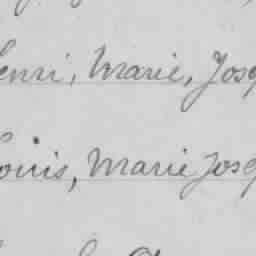 enri, Marie, Jos
ouis, Marie Jos